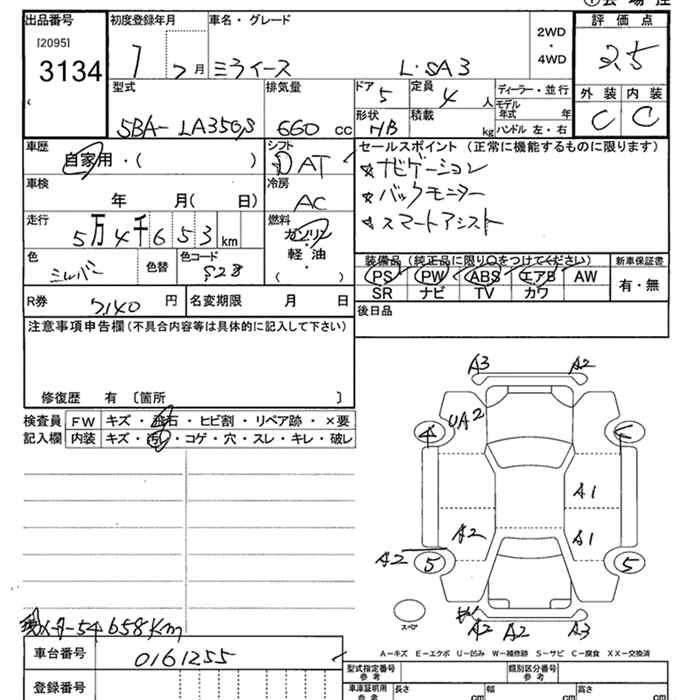 出品番号
[2095]
3134
初度登録年月
7 2 月
車名・グレード
ミライース L・SA3
2WD
・
4WD
評価点
2.5
外装 内装
C C
型式
5BA- LA350S
排気量
660 cc
ドア
5
定員
4 人
形状
HB
積載
kg
ディーラー・並行
モデル年式 年
ハンドル 左・右
車歴
自家用・( )
シフト
AT
セールスポイント (正常に機能するものに限ります)
☆ナビゲーション
☆バックモニター
☆スマートアシスト
車検
年 月( 日)
冷房
AC
走行
5万4千653 km
燃料
ガソリン
・
軽油
( )
色
シルバー
色替
色コード
S28
装備品 (純正品に限り○をつけてください)
PS PW ABS エアB AW
SR ナビ TV カワ
新車保証書
有・無
R券
7,140 円
名変期限 月 日
後日品
注意事項申告欄(不具合内容等は具体的に記入して下さい)
修復歴 有 〔箇所 〕
検査員
記入欄
FW キズ・飛石・ヒビ割・リペア跡・×要
内装 キズ・汚レ・コゲ・穴・スレ・キレ・破レ
A3 A2
UA2
A1
A2 A1
A2
5 5
スペア
A2 A2 A3
54658Km
A-キズ E-エクボ U-凹み W-補修跡 S-サビ C-腐食 XX-交換済
車台番号
0161255
登録番号
型式指定番号
参考
類別区分番号
参考
車庫証明用
参考
長さ cm
幅 cm
高さ cm